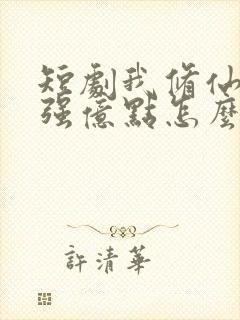 短劇我修仙
强億點怎麼
許清華